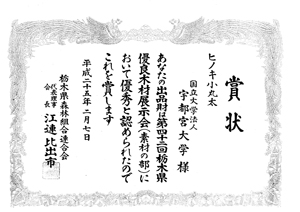 賞状
ヒノキ小丸太
国立大学法人
宇都宮大学 様
あなたの出品財は第四十二回栃木県
優良木材展示会(素材の部)に
おいて優秀と認められたので
これを賞します
平成二十五年二月七日
栃木県森林組合連合会
代表理事
会長
江連比出市